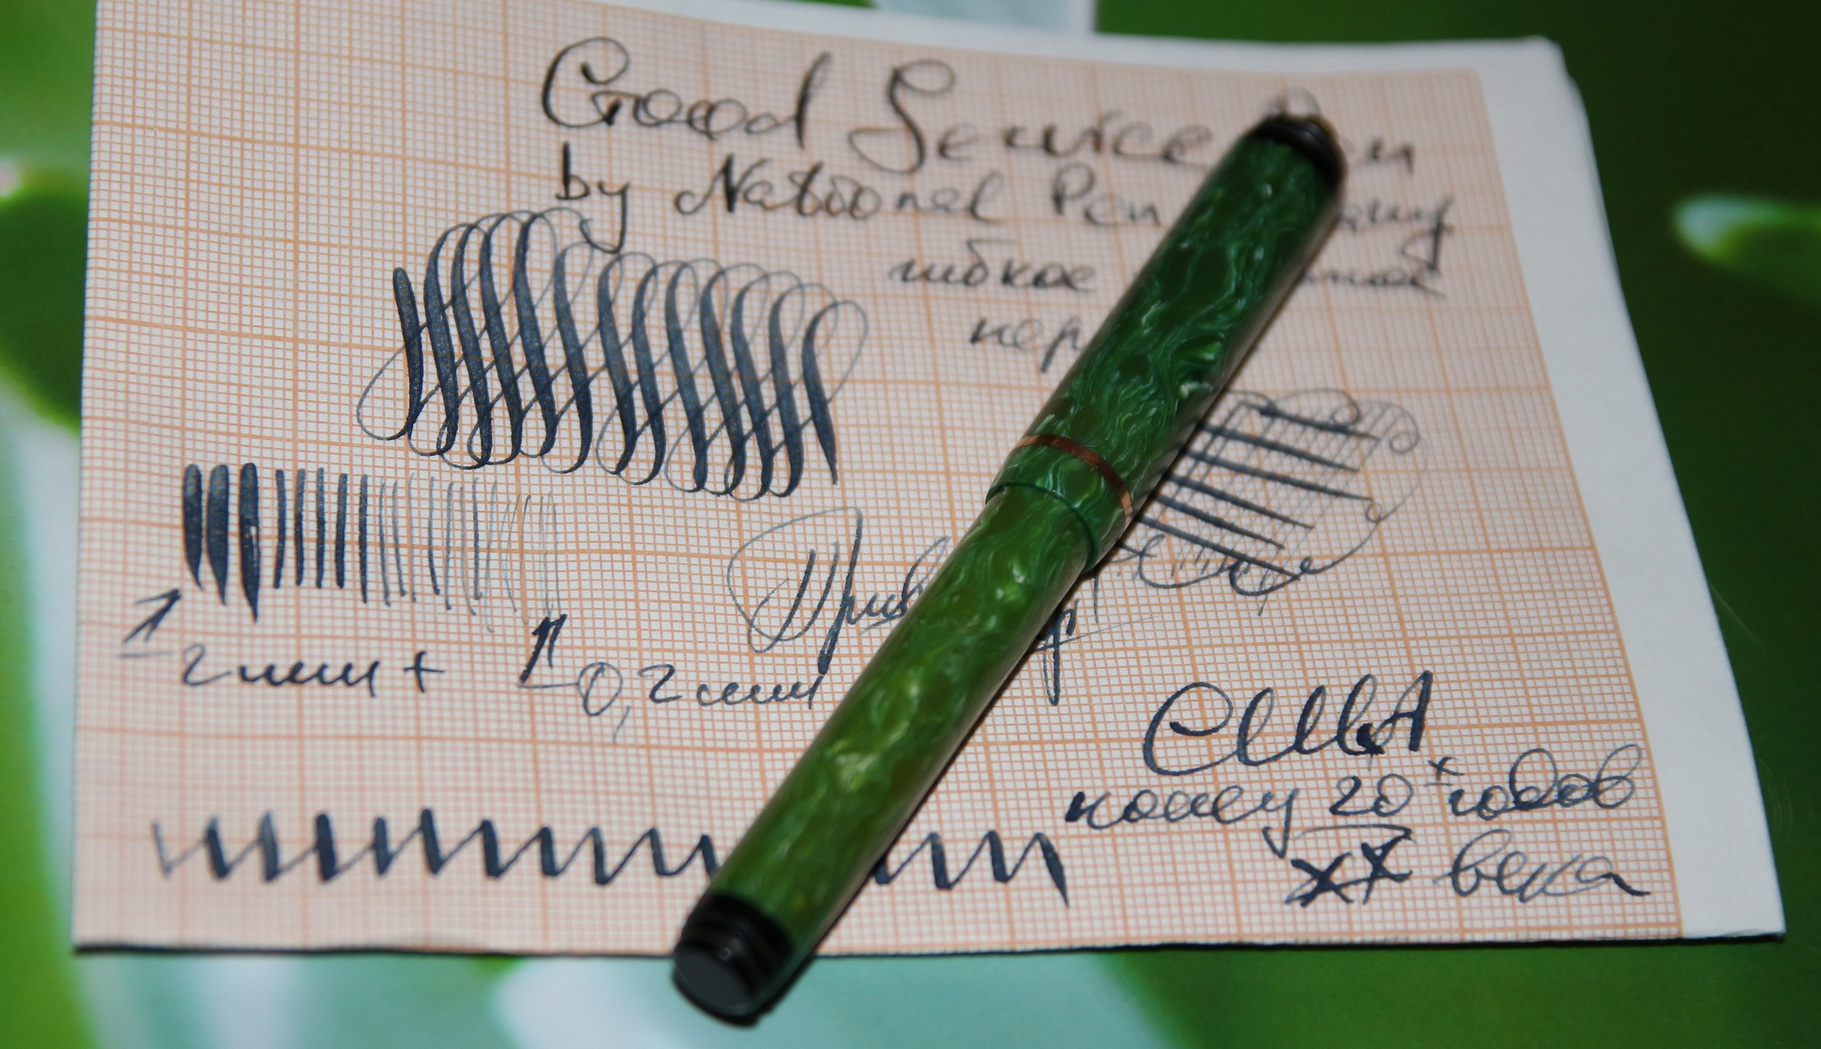 Good Service
by National Pen
гибкое
2 мм + 0,2 мм
США
конец 20х годов
XX века